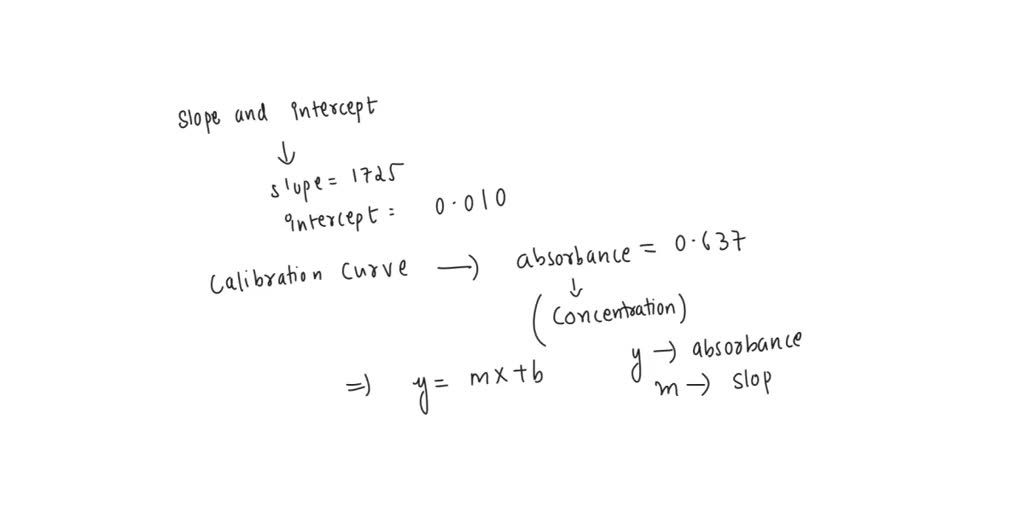 Slope and intercept
↓
slope = 1725
intercept = 0.010
Calibration Curve → absorbance = 0.637
↓
(Concentration)
y → absorbance
⇒ y = mx+b
m → slop